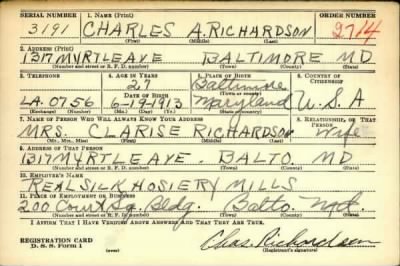 SERIAL NUMBER 1. NAME (Print) ORDER NUMBER
3191 CHARLES A. RICHARDSON 2714
(First) (Middle) (Last)
2. ADDRESS (Print)
1317 MYRTLE AVE BALTIMORE MD
(Number and street or R. F. D. number) (Town) (County) (State)
3. TELEPHONE 4. AGE IN YEARS 5. PLACE OF BIRTH 6. COUNTRY OF CITIZENSHIP
27 Baltimore
(Town or county)
DATE OF BIRTH
LA. 0756 6-19-1913 Maryland U.S.A
(Exchange) (Number) (Mo.) (Day) (Yr.) (State or country)
7. NAME OF PERSON WHO WILL ALWAYS KNOW YOUR ADDRESS 8. RELATIONSHIP OF THAT PERSON
MRS. CLARISE RICHARDSON Wife
(Mr., Mrs., Miss) (First) (Middle) (Last)
9. ADDRESS OF THAT PERSON
1317 MYRTLE AVE. BALTO. MD
(Number and street or R. F. D. number) (Town) (County) (State)
10. EMPLOYER'S NAME
REAL SILK HOSIERY MILLS
11. PLACE OF EMPLOYMENT OR BUSINESS
200 Court Sq. Bldg. Balto. Md.
(Number and street or R. F. D. number) (Town) (County) (State)
I AFFIRM THAT I HAVE VERIFIED ABOVE ANSWERS AND THAT THEY ARE TRUE.
REGISTRATION CARD
D. S. S. Form 1 Chas. Richardson
(Registrant's signature)